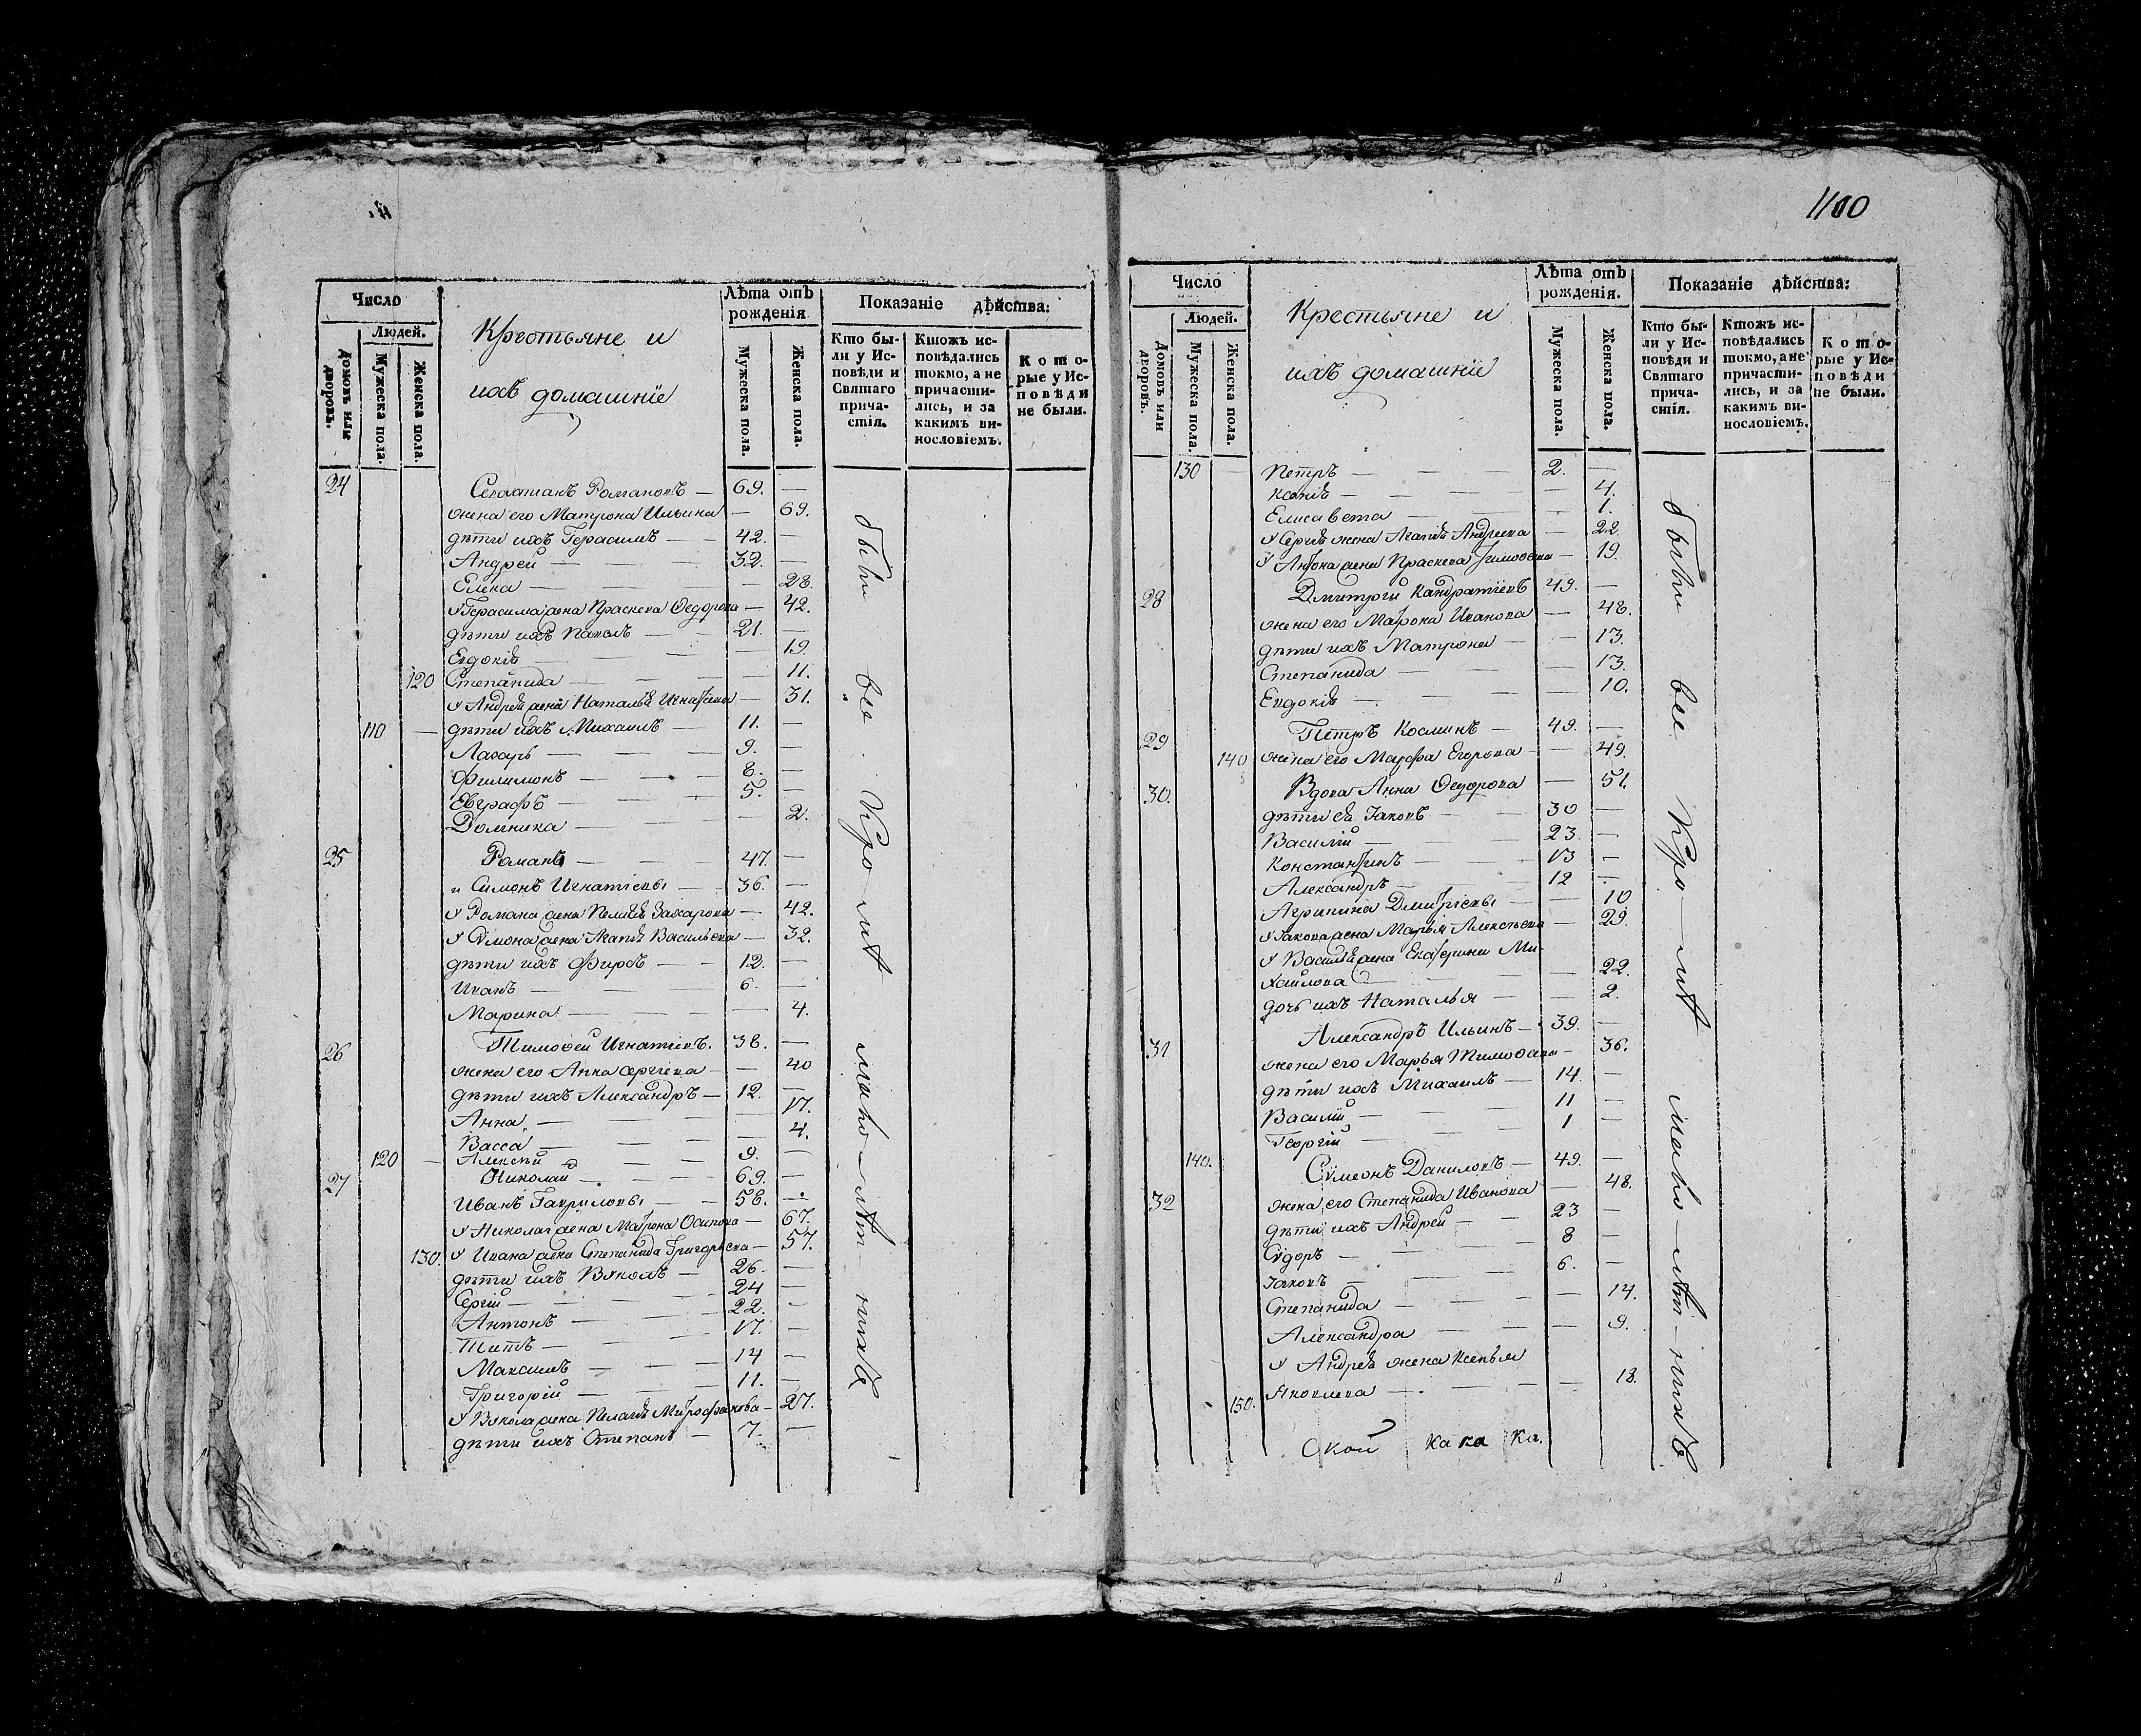 Число
Людей.
Домовъ или дворовъ.
Мужеска пола.
Женска пола.
Крестьяне и
ихъ домашніе
Лѣта отъ
рожденія
Мужеска пола.
Женска пола.
Показаніе дѣйства:
Кто бы-
ли у Ис-
повѣди и
Святаго
прича-
стія.
Ктожъ ис-
повѣдались
токмо, а не
причасти-
лись, и за
какимъ ви-
нословіемъ.
Кото-
рые у Ис-
повѣди
не были.
24 Романовъ — 69. —
жена его Матрона Ильина — 69.
дѣти ихъ Герасимъ — 42. —
Андрей — 32. —
Елена — — 28.
у Герасима жена Праскева Ѳедорова — 42.
дѣти ихъ Павелъ — 21. —
Евдокія — — 19.
120 Степанида — — 11.
у Андрея жена Наталья Игнатьева — 31.
110 — дѣти ихъ Михаилъ — 11. —
Лазарь — 9. —
Филимонъ — 8. —
Евграфъ — 5. —
Домника — — 2.
25 Романъ — 47. —
и Симонъ Игнатіевы — 36. —
у Романа жена Пелагія Захарова — 42.
у Симона жена Агапія Васильева — 32.
дѣти ихъ Фирсъ — 12. —
Иванъ — 6. —
Марина — — 4.
26 Тимоѳей Игнатіевъ. 38. —
жена его Анна — 40
дѣти ихъ Александръ — 12. —
Анна — 17.
Васса — — 4.
120 — Алексѣй — 9. —
27 Николай — 69. —
Иванъ Гавриловы — 58. —
у Николая жена Матрона Осипова — 67.
130. у Ивана жена Степанида Григорьева — 57.
дѣти ихъ Вуколъ — 26. —
Сергій — 24 —
Антонъ — 22. —
Титъ — 17. —
Максимъ — 14 —
Григорій — 11. —
у Вукола жена Пелагія Митрофанова — 27.
дѣти ихъ Степанъ — 7. —
были все
1100
Число
Людей.
Домовъ или дворовъ.
Мужеска пола.
Женска пола.
Крестьяне и
ихъ домашніе
Лѣта отъ
рожденія.
Мужеска пола.
Женска пола.
Показаніе дѣйства:
Кто бы-
ли у Ис-
повѣди и
Святаго
прича-
стія.
Ктожъ ис-
повѣдались
токмо, а не
причасти-
лись, и за
какимъ ви-
нословіемъ.
Кото-
рые у Ис-
повѣди
не были.
130 — Петръ — 2. —
Ксенія — — 4.
Елисавета — — 1.
у Сергія жена Агапія Андреева — 22.
у Антона жена Праскева Тимоѳева — 19.
28 Дмитрій Кандратіевъ 49. —
жена его Матрона Иванова — 48.
дѣти ихъ Матрона — — 13.
Степанида — — 13.
Евдокія — — 10.
29 Петръ Косминъ — 49. —
140 жена его Марфа Егорова — 49.
30. Вдова Анна Ѳедорова — 51.
дѣти ея Іаковъ — 30 —
Василій — 23. —
Константинъ — 13 —
Александръ — 12 —
Агрипина Дмитріевы — — 10
у Іакова жена Марья Алексѣева — 29.
у Василія жена Екатерина Ми-
хайлова — — 22.
дочь ихъ Наталья — — 2.
31 Александръ Ильинъ — 39. —
жена его Марья Тимоѳеева — 36.
дѣти ихъ Михаилъ — 14. —
Василій — 11 —
Георгій — 1 —
140. Сѵмеонъ Даниловъ — 49. —
32 жена его Степанида Иванова — 48.
дѣти ихъ Андрей — 23 —
Сидоръ — 8 —
Іаковъ — 6. —
Степанида — — 14.
Александра — — 9.
у Андрея жена Ксенья
150. Яковлева — — 18.
были все